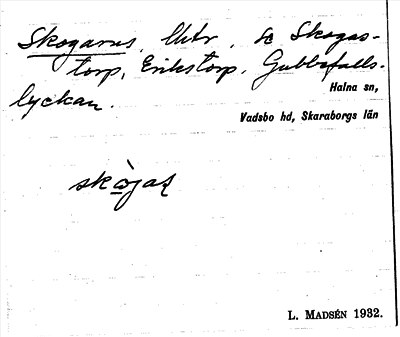 Skogarns, lktr, se Skogas-
torp, Erikstorp, Gubbefalls-
lyckan.
Halna sn,
Vadsbo hd, Skaraborgs län
L. MADSÉN 1932.